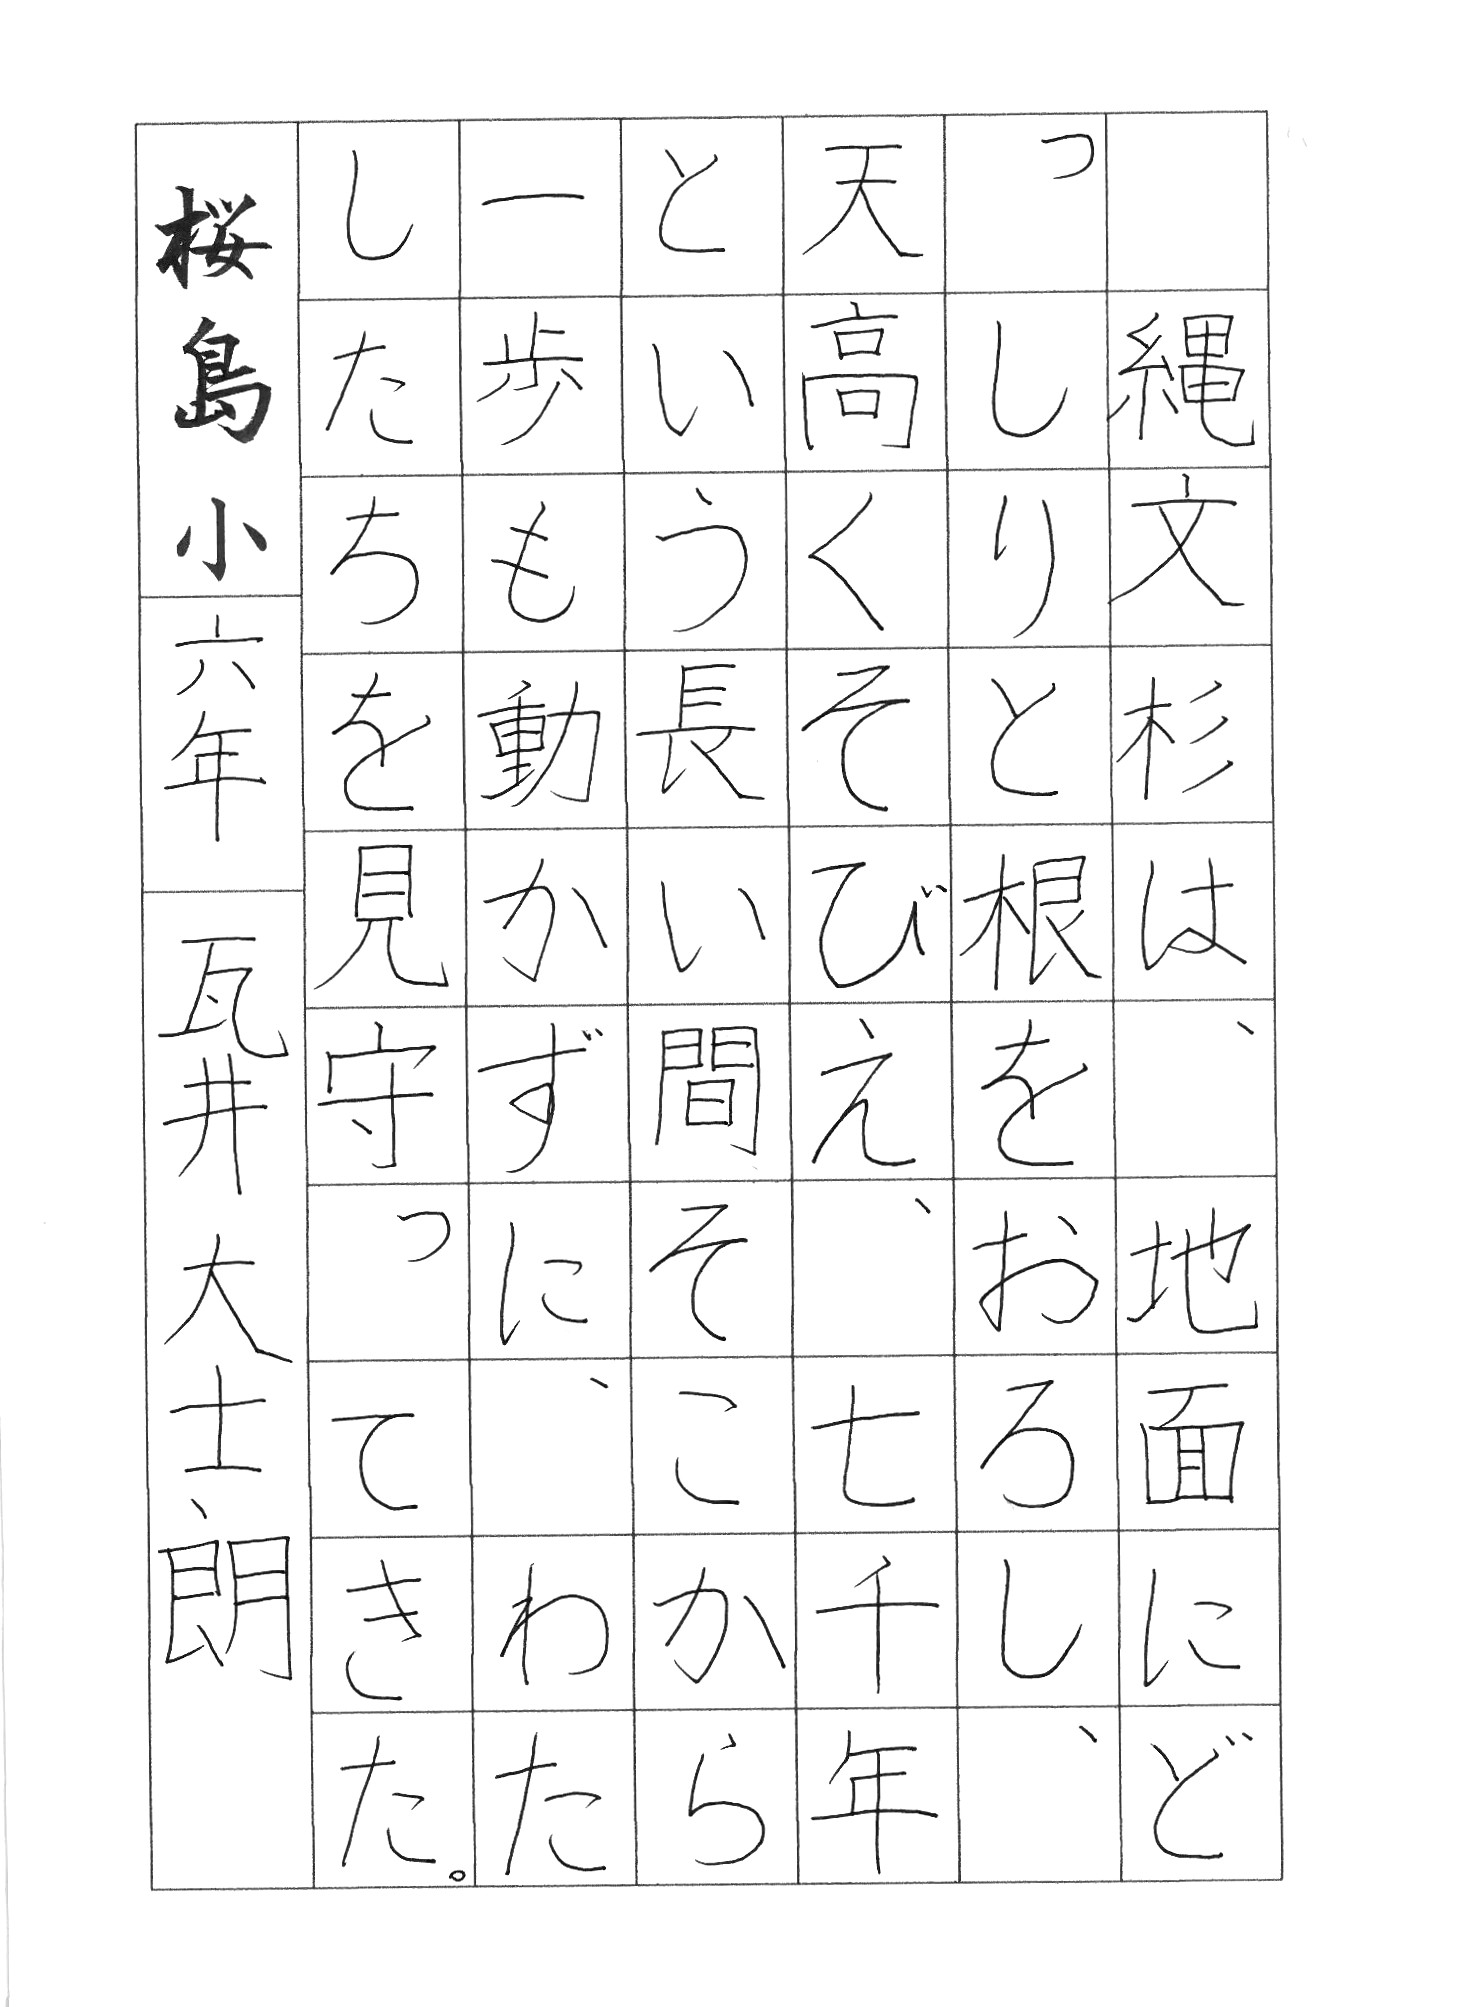 縄文杉は、地面にど
っしりと根をおろし、
天高くそびえ、七千年
という長い間そこから
一歩も動かずに、わた
したちを見守ってきた。
桜島小 六年 瓦井大士朗